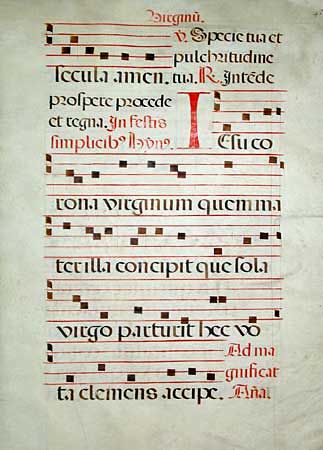 Virginū.
℣. Specie tua et
pulchritudine
secula amen. tua. ℟. Intēde
prospere procede
et regna. In festis
simplicibꝰ Hỹnꝰ.
Iesu co
rona virginum quem ma
ter illa concipit que sola
virgo parturit hec vo
ta clemens accipe.
Ad ma
gnificat
Aña.